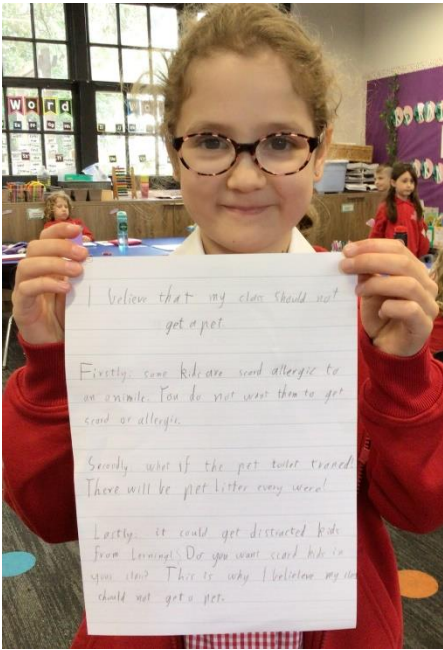 Word
I believe that my class should not
get a pet
Firstly, some kid are scard allergic to
an animile. You do not want them to get
scard or allergic.
Secondly what if the pet toilet traned?
There will be pet litter every were!
Lastly, it could get distracted kids
from lerning! Do you want scard kids in
your class? This is why I belieleve my class
should not get a pet.